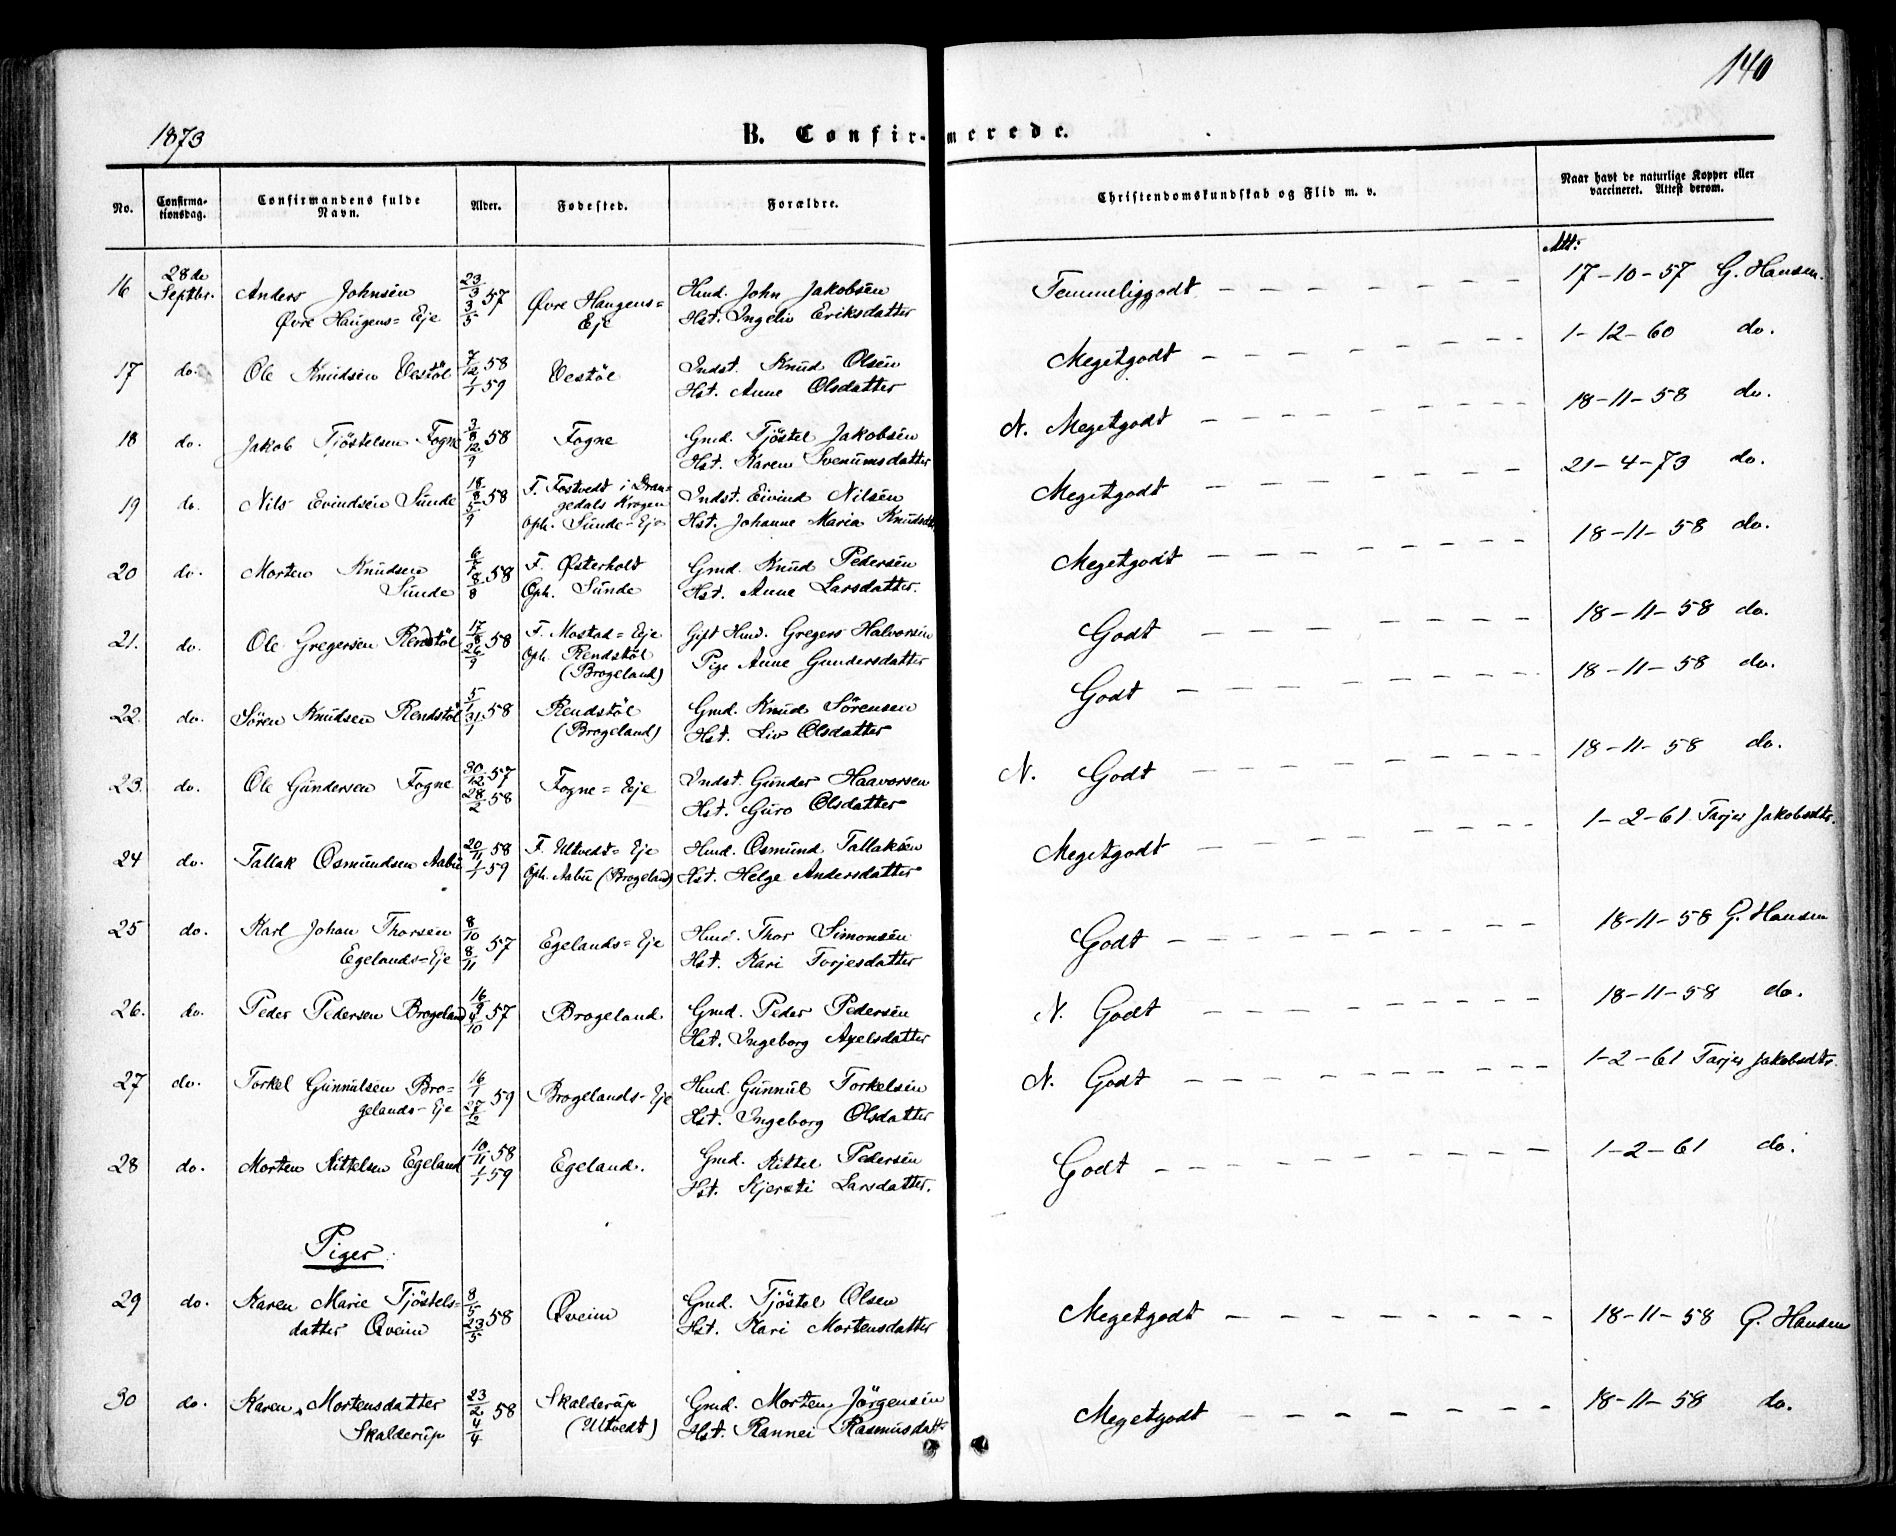 140
1873
B. Confirmerede.
No. Confirmationsdag. Confirmandens fulde Navn. Alder. Fødested. Forældre. Christendomskundskab og Flid m. v. Naar havt de naturlige Kopper eller vaccineret. Attest derom.
Att:
16 28de Septbr. Anders Johnsen 23/3 57 Øvre Haugens= Hmd. John Jakobsen Temmeliggodt 17-10-57 G. Hansen.
Øvre Haugens= Eje 3/5 Eje Hst. Ingeliv Eriksdatter
17 do. Ole Knudsen Vestøl 7/12 58 Vestøl Indst. Knud Olsen Megetgodt 1-12-60 do.
1/1 59 Hst. Anne Olsdatter
18 do. Jakob Tjöstelsen Fogne 3/8 58 Fogne Gmd. Tjöstel Jakobsen N. Megetgodt 18-11-58 do.
12/9 Hst. Karen Svenumsdatter
19 do. Nils Evindsen Sunde 18/8 58 F. Fostvedt i Dran= Indst. Eivind Nilsen Megetgodt 21-4-73 do.
5/9 gedals Krogen
Oph. Sunde-Eje Hst. Johanne Maria Knudsdt.
20 do. Morten Knudsen 58 F. Østerholt Gmd. Knud Pedersen Megetgodt 18-11-58 do.
Sunde 8/8 Oph. Sunde Hst. Anne Larsdatter.
21. do. Ole Gregersen Rendstöl 17/8 58 F. Mostad=Eje Gift Hmd. Gregers Halvorsen Godt 18-11-58 do.
26/9 Oph. Rendstöl Pige Anne Gundersdatter
(Brogeland)
22. do. Sören Knudsen Rendstöl 5/1 58 Rendstöl Gmd. Knud Sörensen Godt 18-11-58 do.
31/1 (Brogeland) Hst. Liv Olsdatter
23. do. Ole Gundersen Fogne 30/12 57 Fogne=Eje Indst. Gunder Haavorsen N. Godt 18-11-58 do.
28/2 58 Hst. Guro Olsdatter
24 do. Tallak Osmundsen Aabu 20/11 58 F. Ultvedt=Eje Hmd. Osmund Tallaksen Megetgodt 1-2-61 Tarjer Jakobsdtr.
1/1 59 Oph. Aabu (Brogeland) Hst. Helge Andersdatter
25 do. Karl Johan Thorsen 8/10 57 Egelands=Eje Hmd. Thor Simonsen Godt 18-11-58 G. Hansen
Egelands=Eje 8/11 Hst. Kari Torjesdatter
26. do. Peder Pedersen Brogeland 16/9 57 Brogeland Gmd. Peder Pedersen N. Godt 18-11-58 do.
4/10 Hst. Ingeborg Axelsdatter
27 do. Torkel Gunnulsen Bro= 16/1 59 Brogelands-Eje Hmd. Gunnul Torkelsen N. Godt 1-2-61 Tarjer Jakobsdtr.
gelands-Eje 27/2 Hst. Ingeborg Olsdatter
28 do. Morten Kittelsen Egeland 10/11 58 Egeland. Gmd. Kittel Pedersen Godt 1-2-61 do.
1/1 59 Hst. Kjersti Larsdatter.
Piger.
29 do. Karen Marie Tjöstels= 8/5 58 Qveim Gmd. Tjöstel Olsen Megetgodt 18-11-58 G. Hansen
datter Qveim 23/5 Hst. Kari Mortensdatter
30 do. Karen Mortensdatter 23/2 58 Skalderup Gmd. Morten Jörgensen Megetgodt 18-11-58 do.
Skalderup 4/4 (Ultvedt) Hst. Rannei Rasmusdatt